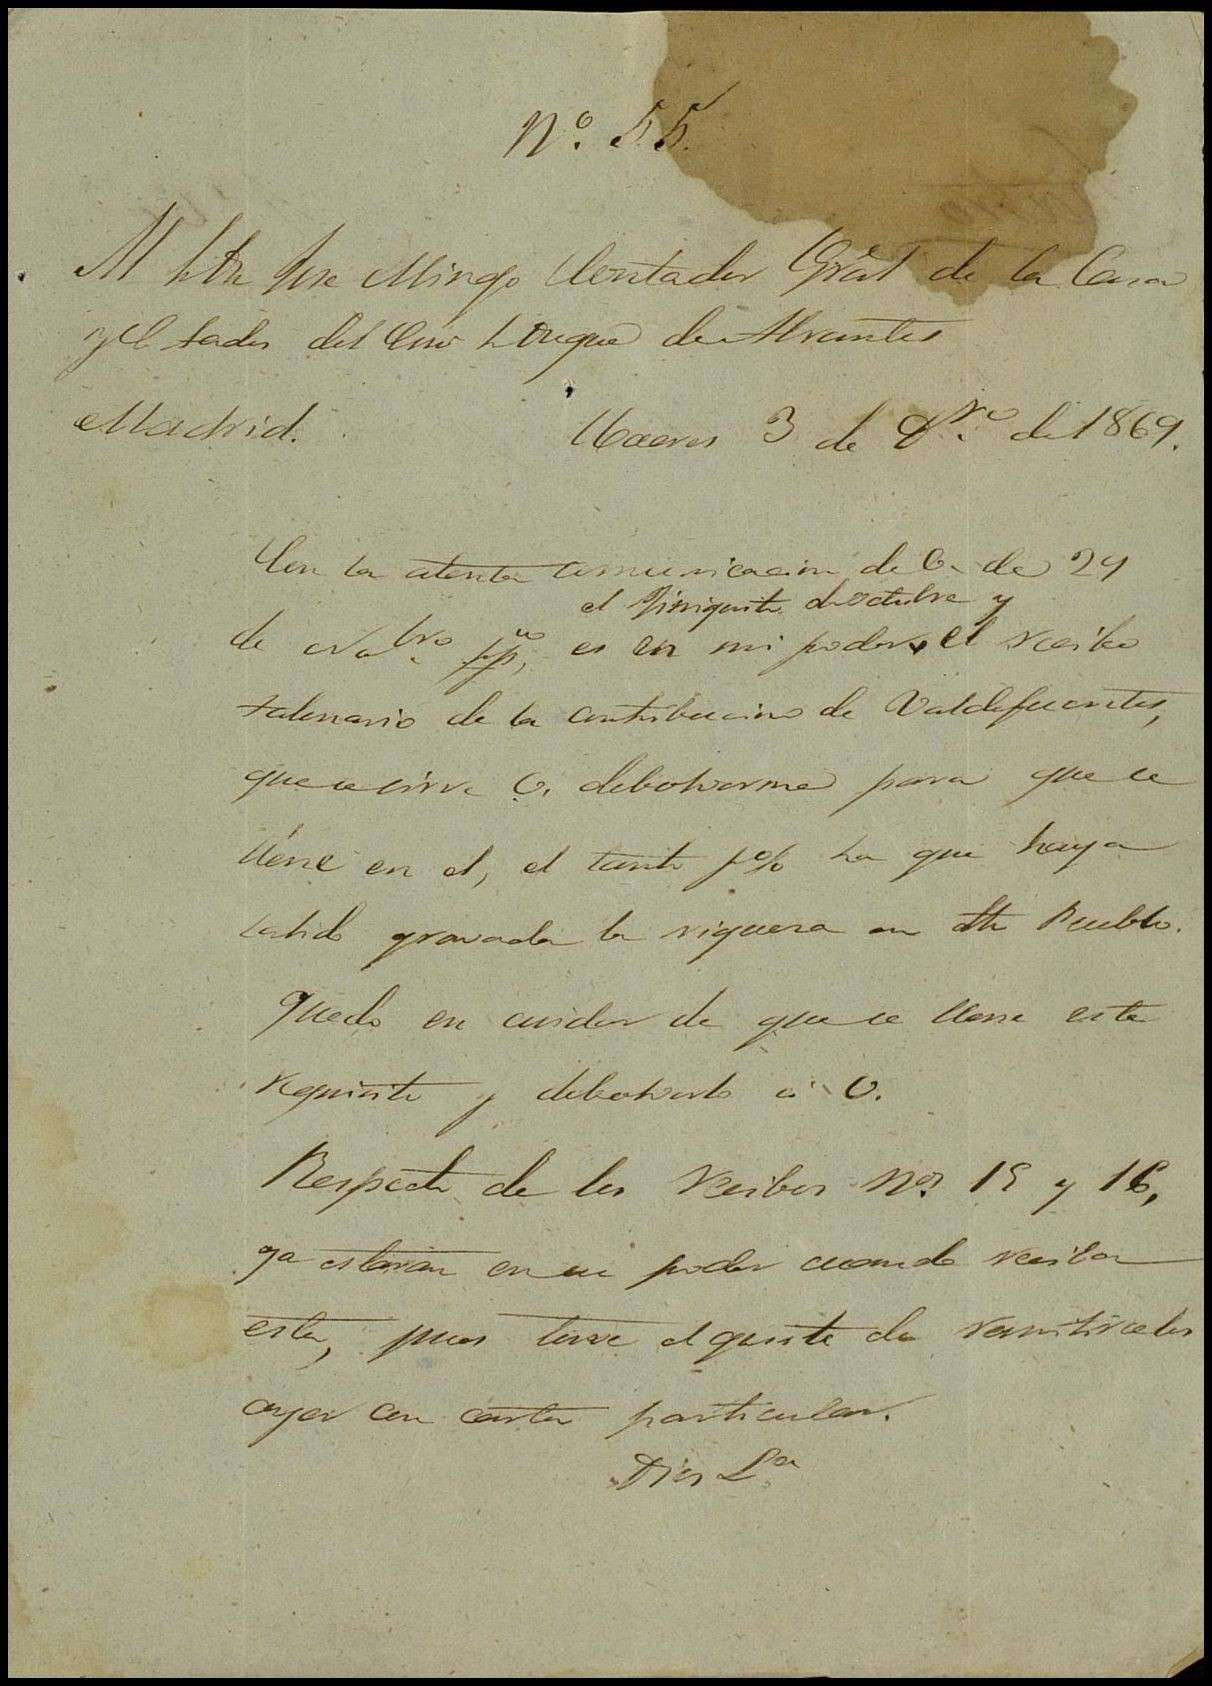 Nº. 55.
Jose Mingo Contador Gral de la Casa
y Estados del Duque de Abrantes
Madrid.
Caceres 3 de Dro. de 1869.
Con la atenta comunicacion de V. de 29
el finiquito de octubre y
de Nobro. pp, es en mi poder, el recibo
talonario de la contribucion de Valdefuentes,
que se sirve V. debolverme para que se
llene en el, el tanto p% ha que haya
salido gravada la riqueza en dho Pueblo.
Quedo en cuidar de que se llene este
requisito y debolverlo a V.
Respecto de los recibos Nos. 15 y 16,
ya estaran en su poder cuando reciba
esta, pues tuve el gusto de remitirselos
ayer con carta particular.
Dios